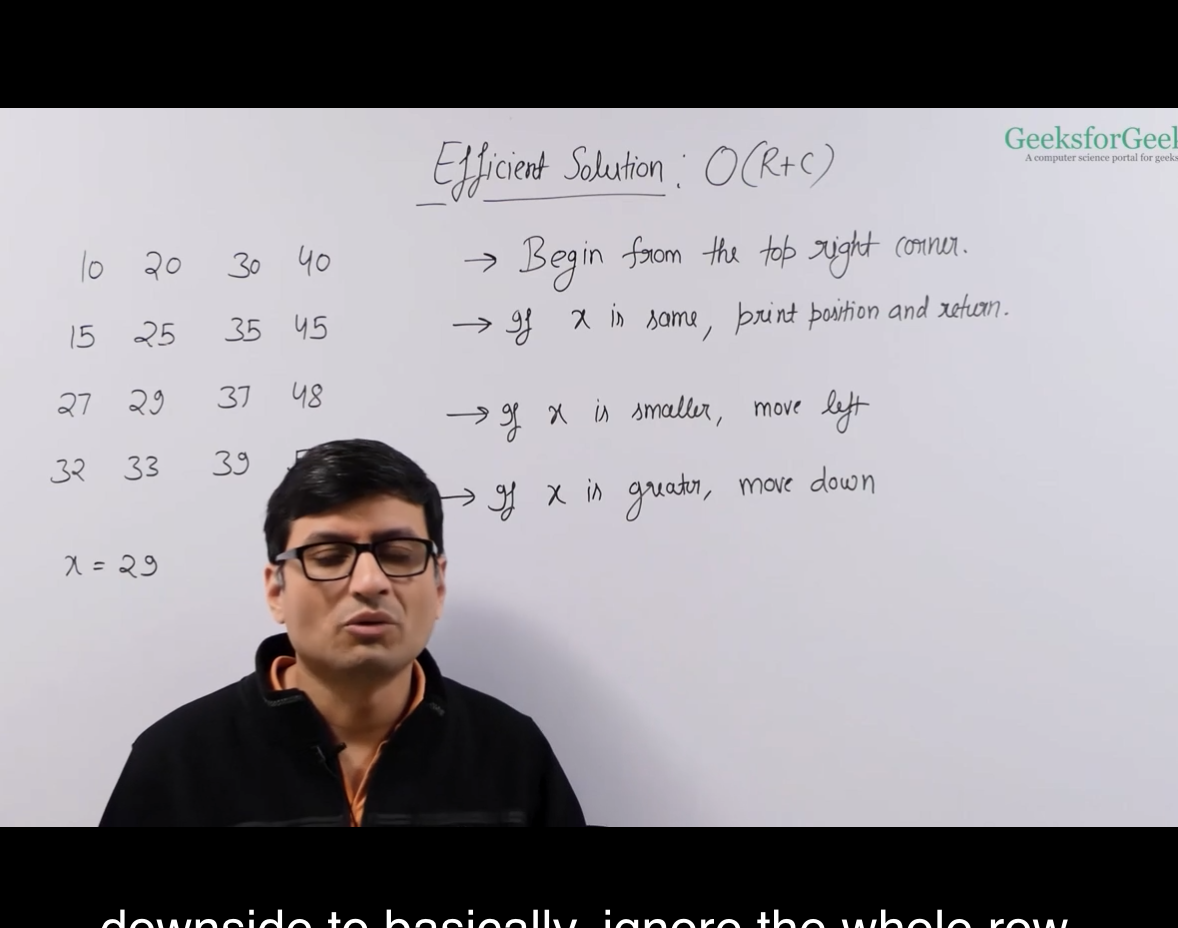 GeeksforGeek
A computer science portal for geeks
Efficient Solution: O(R+C)
10 20 30 40
15 25 35 45
27 29 37 48
32 33 39
x = 29
→ Begin from the top right corner.
→ If x is same, print position and return.
→ If x is smaller, move left
→ If x is greater, move down
downside to basically, ignore the whole row